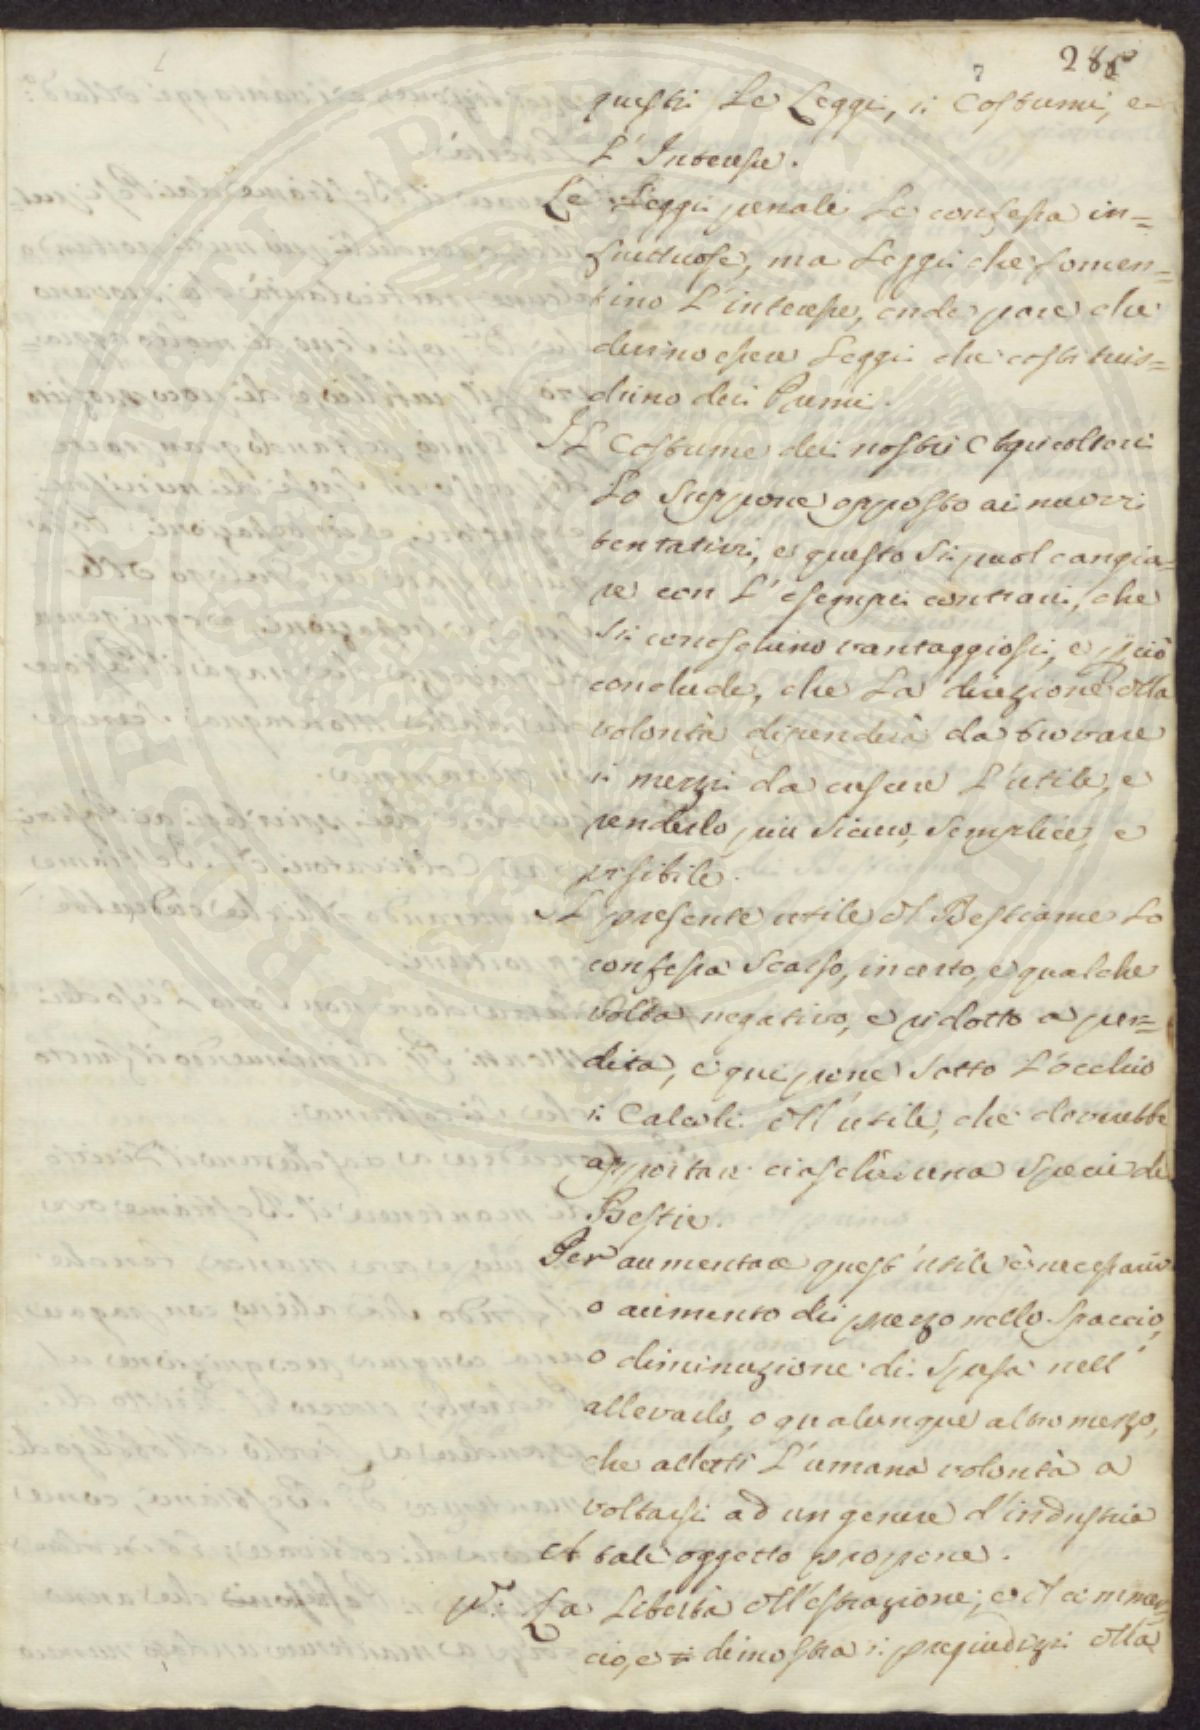 285
7
questi Le Leggi, i Costumi, e
L'Interesse.
Le Leggi penali Le confessa in=
fruttuose, ma Leggi che fomen=
tino L'interesse, onde pare che
devino essere Leggi che costituis=
chino dei Premi.
Il Costume dei nostri Agricoltori
Lo suppone opposto ai nuovi
tentativi, e questo si puol cangia=
re con L'esempi contrari, che
si conoschino vantaggiosi, e pciò
conclude, che La direzione dlla
volontà dipenderà da trovare
i mezzi da cresere L'utile, e
renderlo piu sicuro, semplice, e
visibile.
Il presente utile dl Bestiame Lo
confessa scarso, incerto, e qualche
volta negativo, e ridotto a per=
dita, e qui pone sotto L'occhio
i Calcoli dll'utile, che dovrebbe
apportare ciascheduna specie di
Bestie.
Per aumentare quest'utile è necessario
o aumento di prezzo nello spaccio,
o diminuzione di spesa nell'
allevarlo, o qualunque altro mezzo,
che alletti L'umana volontà a
voltarsi ad un genere d'industria
A tale oggetto propone.
p.º La Libertà dll'estrazione, e dl commer=
cio, e dimostra i pregiudizi dlla